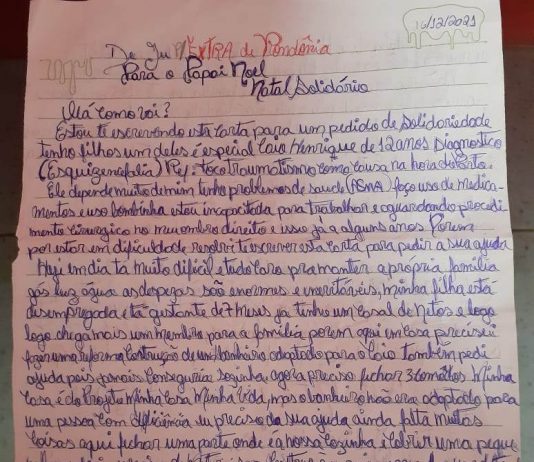 16/12/2021
De Ju P/ EXTRA de Rondônia
Para o Papai Noel
Natal Solidário
Olá como vai?
Estou te escrevendo esta carta para um pedido de Solidariedade
tenho filhos um deles é especial Caio Henrique de 12 anos Diagnostico
(Esquizencefalia) Ref: tocotraumatismo como causa na hora do parto.
Ele depende muito de mim tenho problemas de saude (ASMA) faço uso de Medica-
mentos e uso bombinha estou incapacitada para trabalhar e aguardando procedi
mento cirurgico no meu ombro direito e isso já a alguns anos Porem
por estar em dificuldade resolvi te escrever esta carta para pedir a sua ajuda
Hoje em dia tá muito dificil e tudo caro pra manter a própria familia
gás luz água as despesas são enormes e inevitáveis, minha filha está
desempregada e tá gestante de 7 meses já tenho um casal de netos e logo
logo chega mais um membro para a familia porem aqui em casa precisei
fazer uma reforma construção de um banheiro adaptado para o Caio também pedi
ajuda pois jamais conseguiria sozinha agora preciso fichar 3 comodos Minha
casa é do Projeto Minha Casa Minha Vida, mas o banheiro não era adaptado para
uma pessoa com deficiência eu preciso da sua ajuda ainda falta muitas
coisas aqui fichar uma parte onde é a nossa cozinha cobrir uma peque